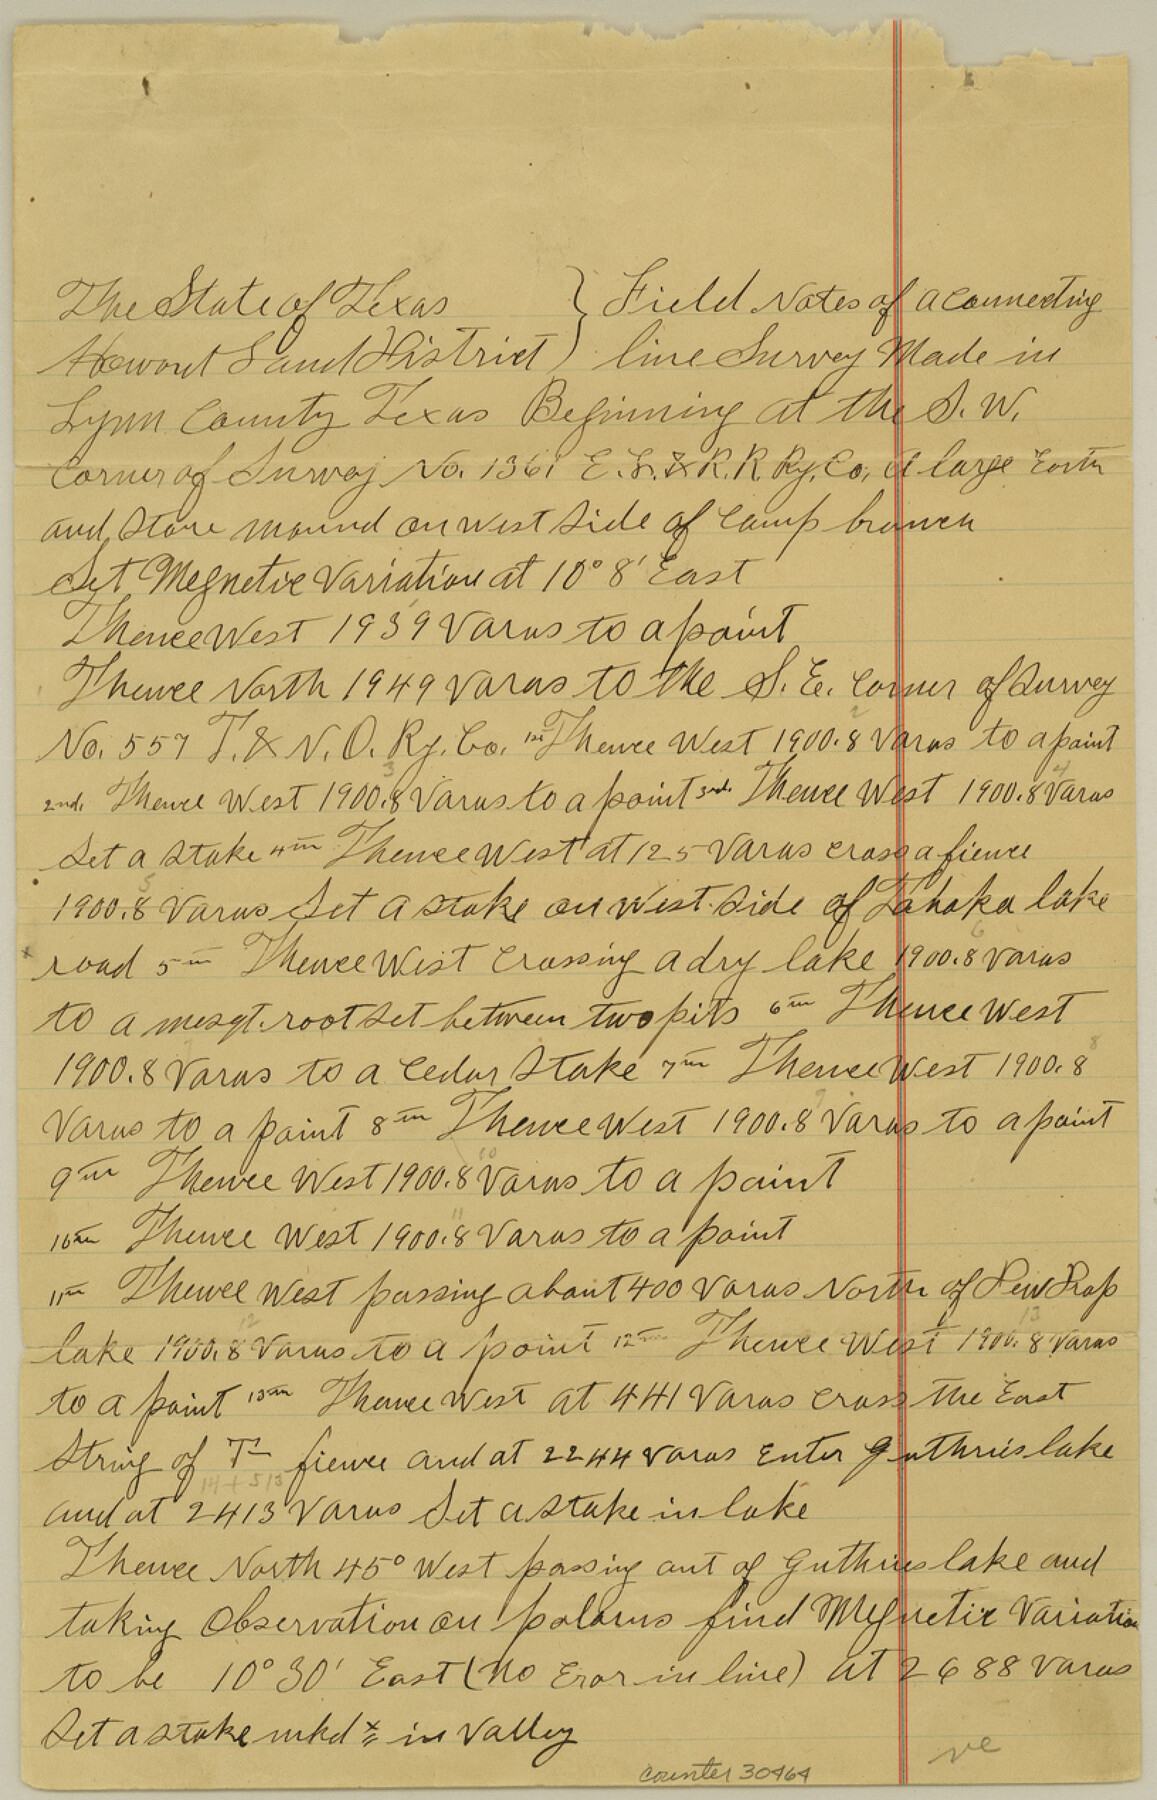 The State of Texas } Field Notes of a Connecting
Howard Land District } line Survey Made in
Lynn County Texas Beginning at the S. W.
Corner of Survey No. 1361 E. L. & R. R. Ry. Co. A large Earth
and Stone mound on west side of Camp branch
Set Megnetic Variation at 10° 8' East
Thence West 1939 Varas to a point
Thence North 1949 Varas to the S. E. Corner of Survey
No. 557 T. & N. O. Ry. Co. 1st Thence West 1900.8 Varas to a point
2nd. Thence West 1900.8 Varas to a point 3rd. Thence West 1900.8 Varas
Set a Stake 4th Thence West at 125 Varas cross a fience
1900.8 Varas Set a stake on West Side of Tahoka lake
road 5th Thence West Crossing a dry lake 1900.8 varas
to a mesqt. root set between two pits 6th Thence West
1900.8 Varas to a Cedar Stake 7th Thence West 1900.8
Varas to a point 8th Thence West 1900.8 Varas to a point
9th Thence West 1900.8 Varas to a point
10th Thence West 1900.8 Varas to a point
11th Thence West passing about 400 Varas North of Dew Drop
lake 1900.8 Varas to a point 12th Thence West 1900.8 Varas
to a point 13th Thence West at 441 Varas cross the East
String of T fience and at 2244 varas Enter Guthries lake
14 + 513
and at 2413 Varas Set a stake in lake
Thence North 45° West passing out of Guthries lake and
taking Observation on polarus find Megnetic Variation
to be 10° 30' East (No Eror in line) at 2688 Varas
Set a stake mkd in Valley
counter 30464